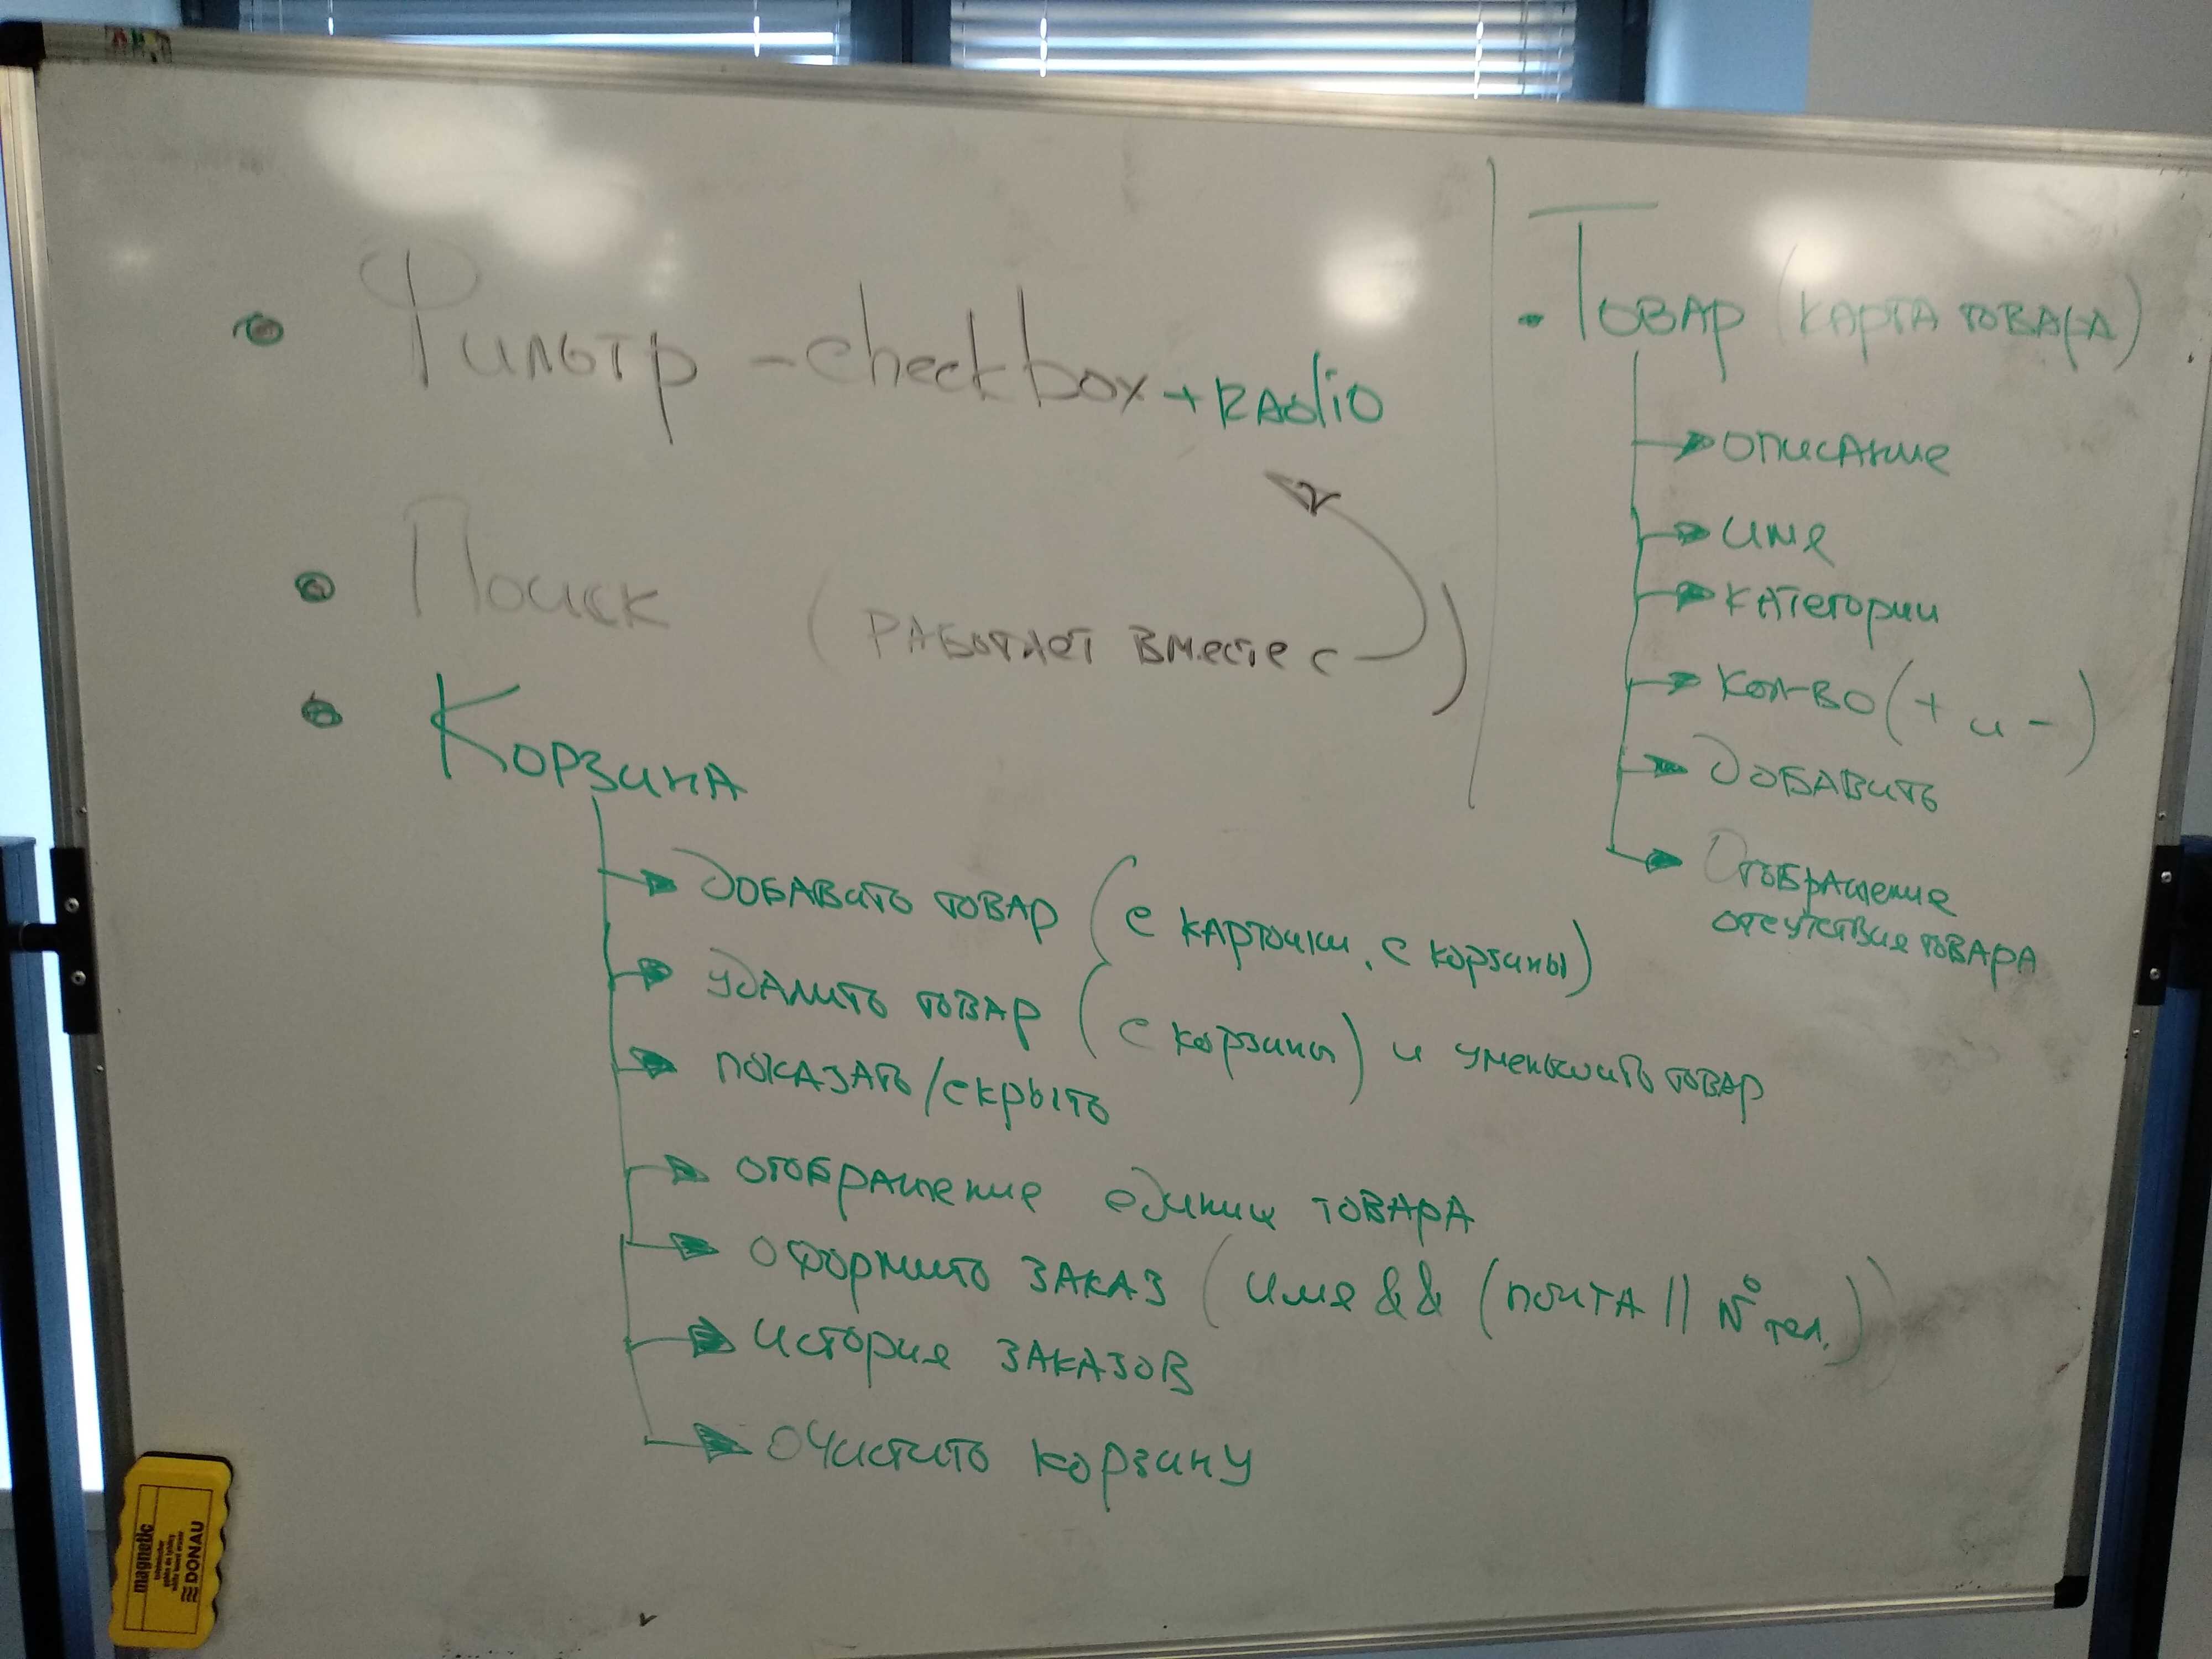 Фильтр - checkbox + Radio
Поиск (работает вместе с )
Корзина
добавить товар (с карточки, с корзины)
удалить товар (с корзины) и уменьшить товар
показать/скрыть
отображение единиц товара
оформить заказ (имя && (почта || № тел.))
история заказов
очистить корзину
Товар (карта товара)
описание
имя
категории
кол-во (+ и -)
добавить
Отображение
отсутствия товара
magnetic
DONAU